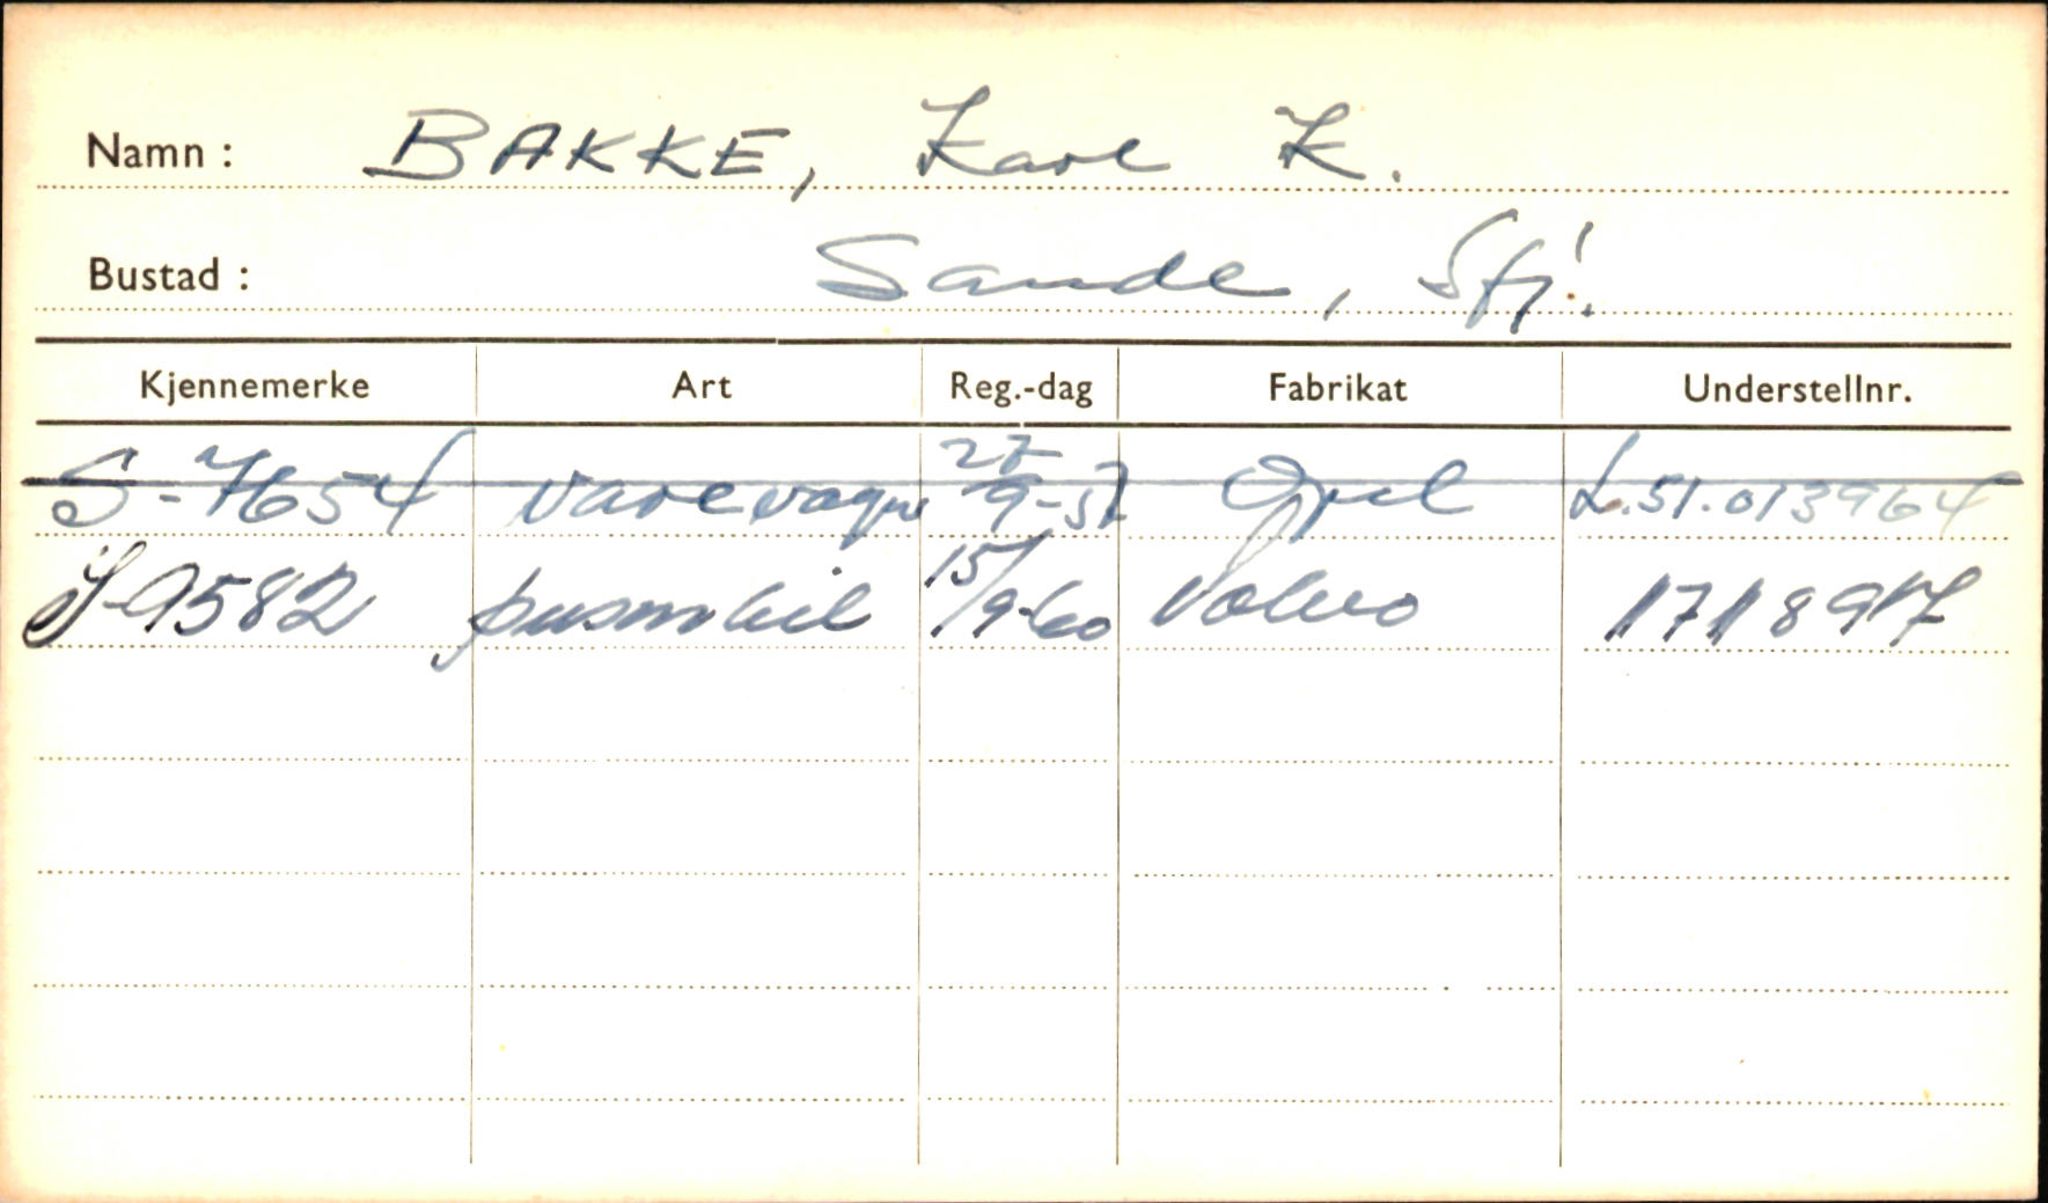 Namn : BAKKE, Karl K.
Bustad : Sande, Sfj.
Kjennemerke Art Reg.-dag Fabrikat Understellnr.
S-7654 varevogn 27/9-57 Opel L.51.013964
S-9582 personbil 15/9-60 Volvo 1718917